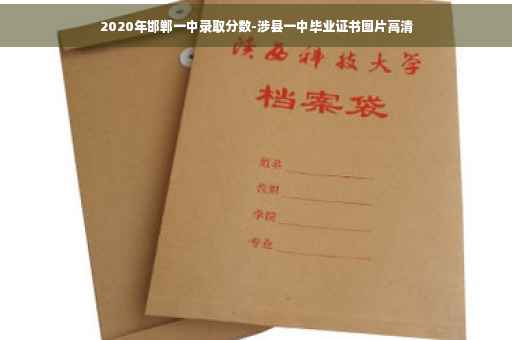 2020年邯郸一中录取分数-涉县一中毕业证书图片高清
陕西科技大学
档案袋
姓名
学院
专业